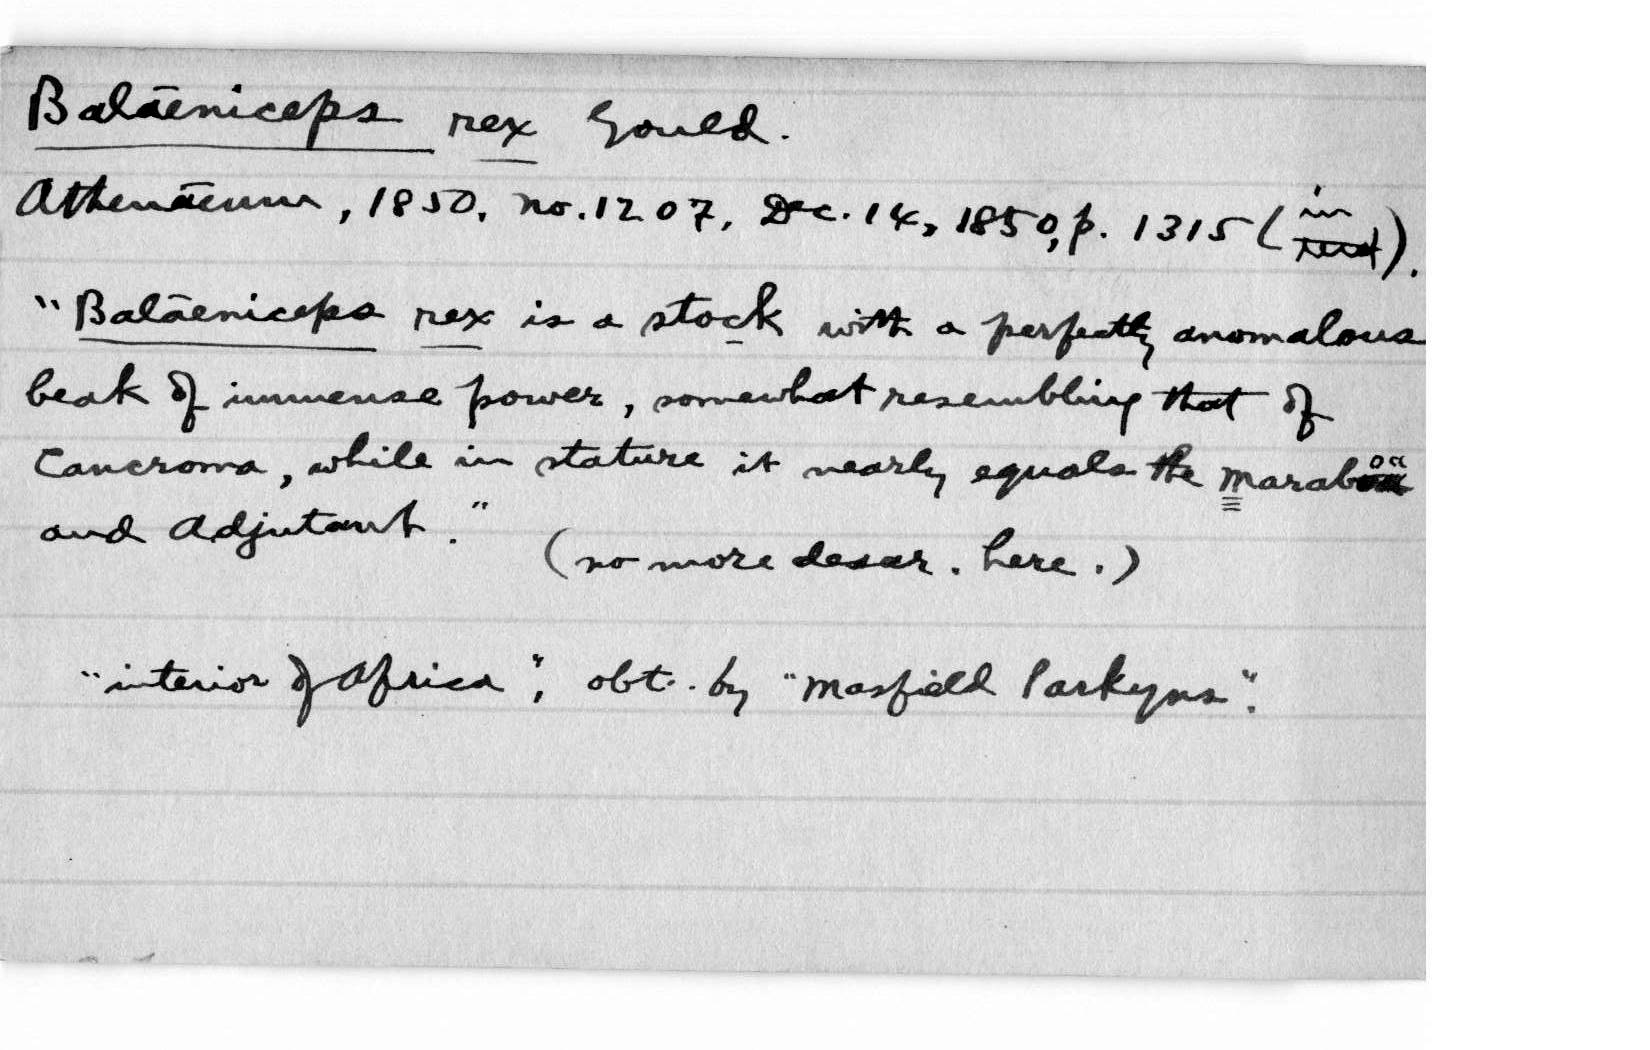 Balāeniceps rex Gould.
Athenāeum, 1850, no. 1207, Dec. 14, 1850, p. 1315 (in text).
"Balāeniceps rex is a stock with a perfectly anomalous
beak of immense power, somewhat resembling that of
Cancroma, while in stature it nearly equals the Maraboa
and Adjutant."
(no more descr. here.)
"interior of Africa"; obt. by "Masfield Parkyns".